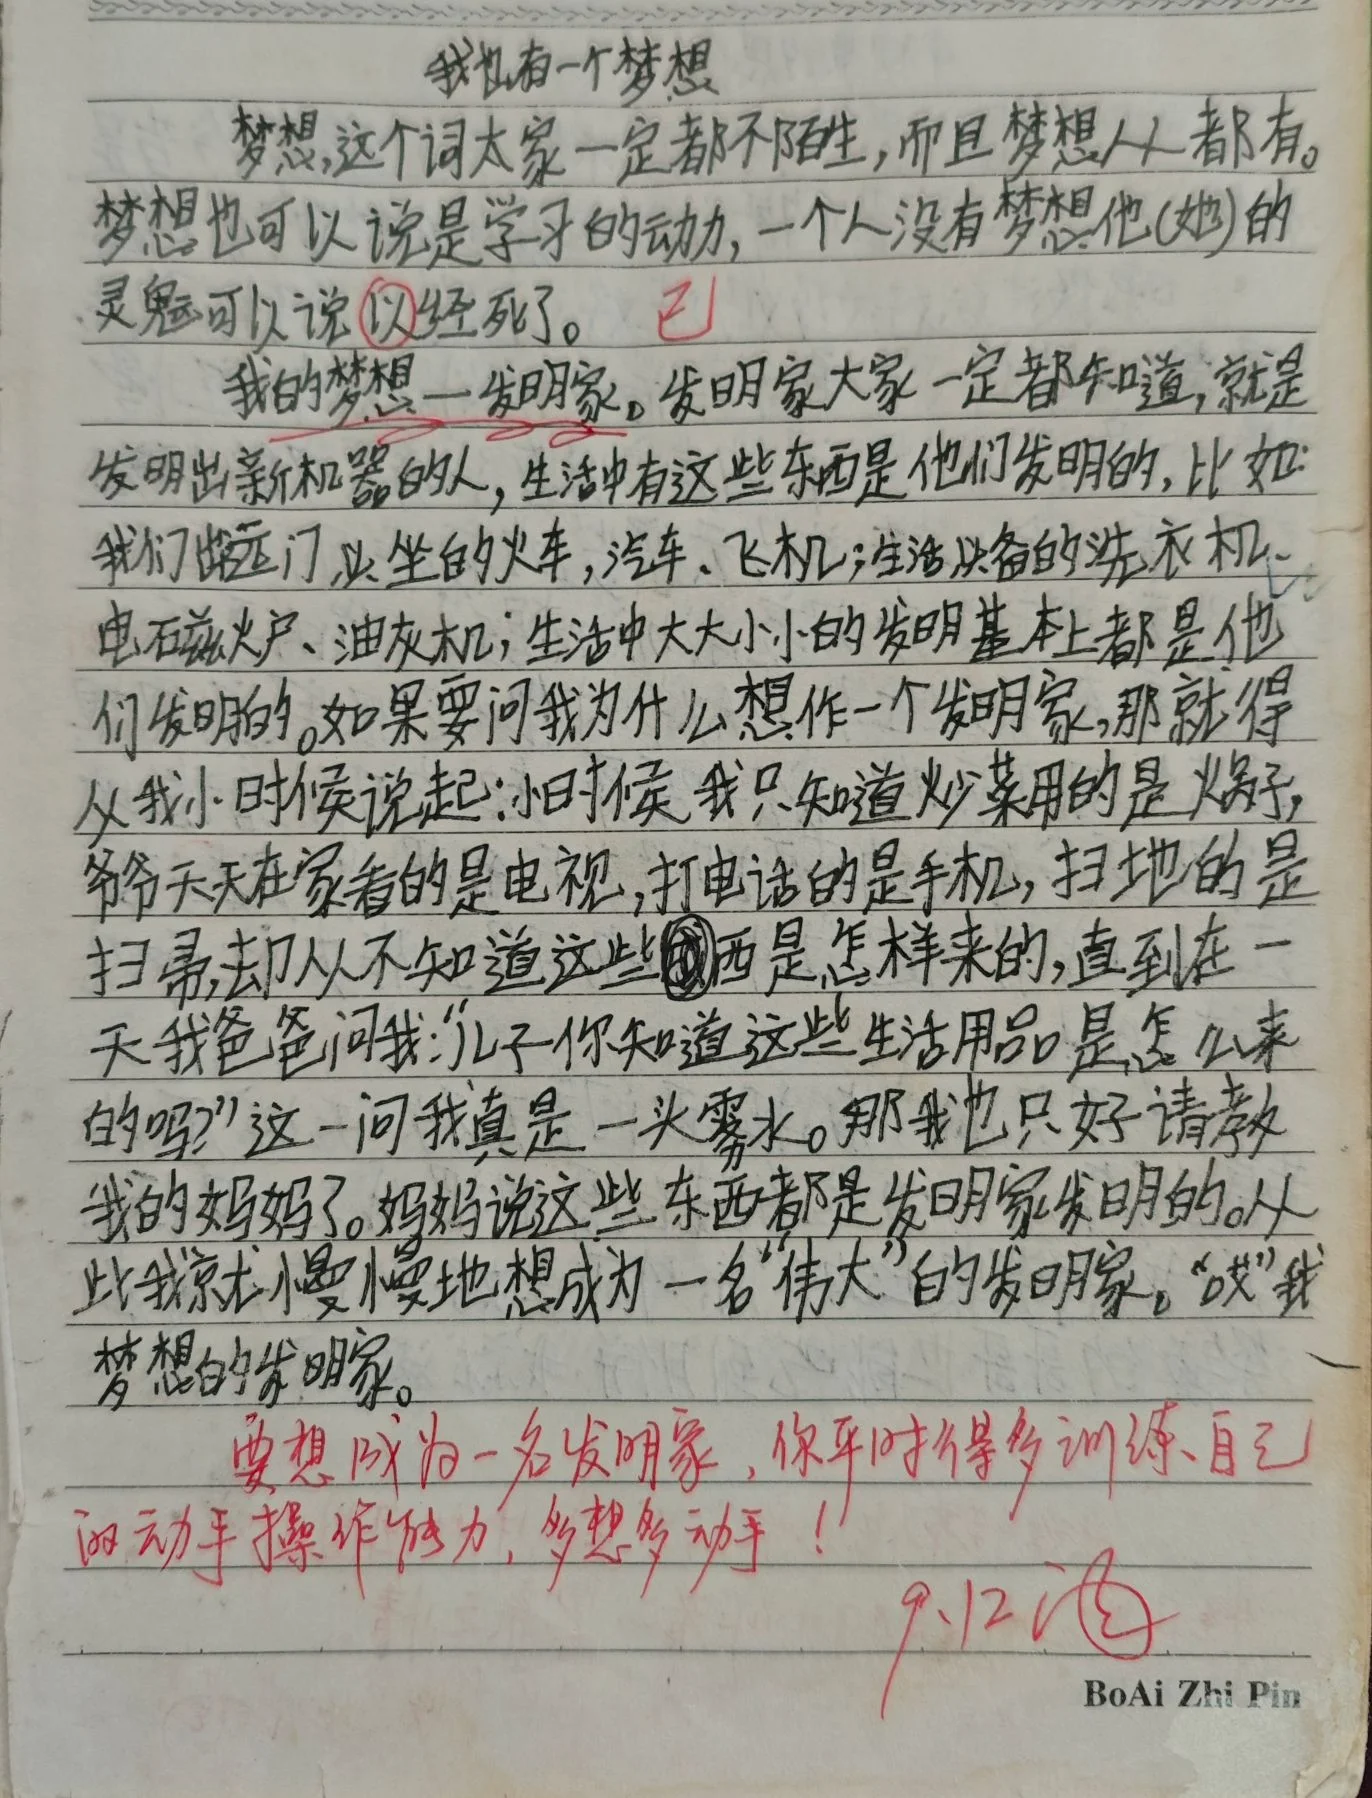 我也有一个梦想
梦想,这个词大家一定都不陌生,而且梦想人人都有。
梦想也可以说是学习的动力,一个人没有梦想他(她)的
灵魂可以说以经死了。 已
我的梦想一发明家。发明家大家一定都知道,就是
发明出新机器的人,生活中有这些东西是他们发明的,比如:
我们出远门必坐的火车,汽车、飞机;生活必备的洗衣机、
电磁炉、油灰机;生活中大大小小的发明基本上都是他
们发明的。如果要问我为什么想作一个发明家,那就得
从我小时候说起:小时候我只知道炒菜用的是锅子,
爷爷天天在家看的是电视,打电话的是手机,扫地的是
扫帚,却从不知道这些西是怎样来的,直到在一
天我爸爸问我:“儿子你知道这些生活用品是怎么来
的吗?”这一问我真是一头雾水。那我也只好请教
我的妈妈了。妈妈说这些东西都是发明家发明的。从
此我就慢慢地想成为一名“伟大”的发明家。“哎”我
梦想的发明家。
要想成为一名发明家,你平时得多训练自己
的动手操作能力,多想多动手!
9.12
BoAi Zhi Pin